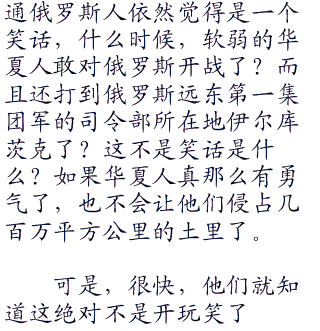 通俄罗斯人依然觉得是一个
笑话，什么时候，软弱的华
夏人敢对俄罗斯开战了？而
且还打到俄罗斯远东第一集
团军的司令部所在地伊尔库
茨克了？这不是笑话是什
么？如果华夏人真那么有勇
气了，也不会让他们侵占几
百万平方公里的土里了。
可是，很快，他们就知
道这绝对不是开玩笑了